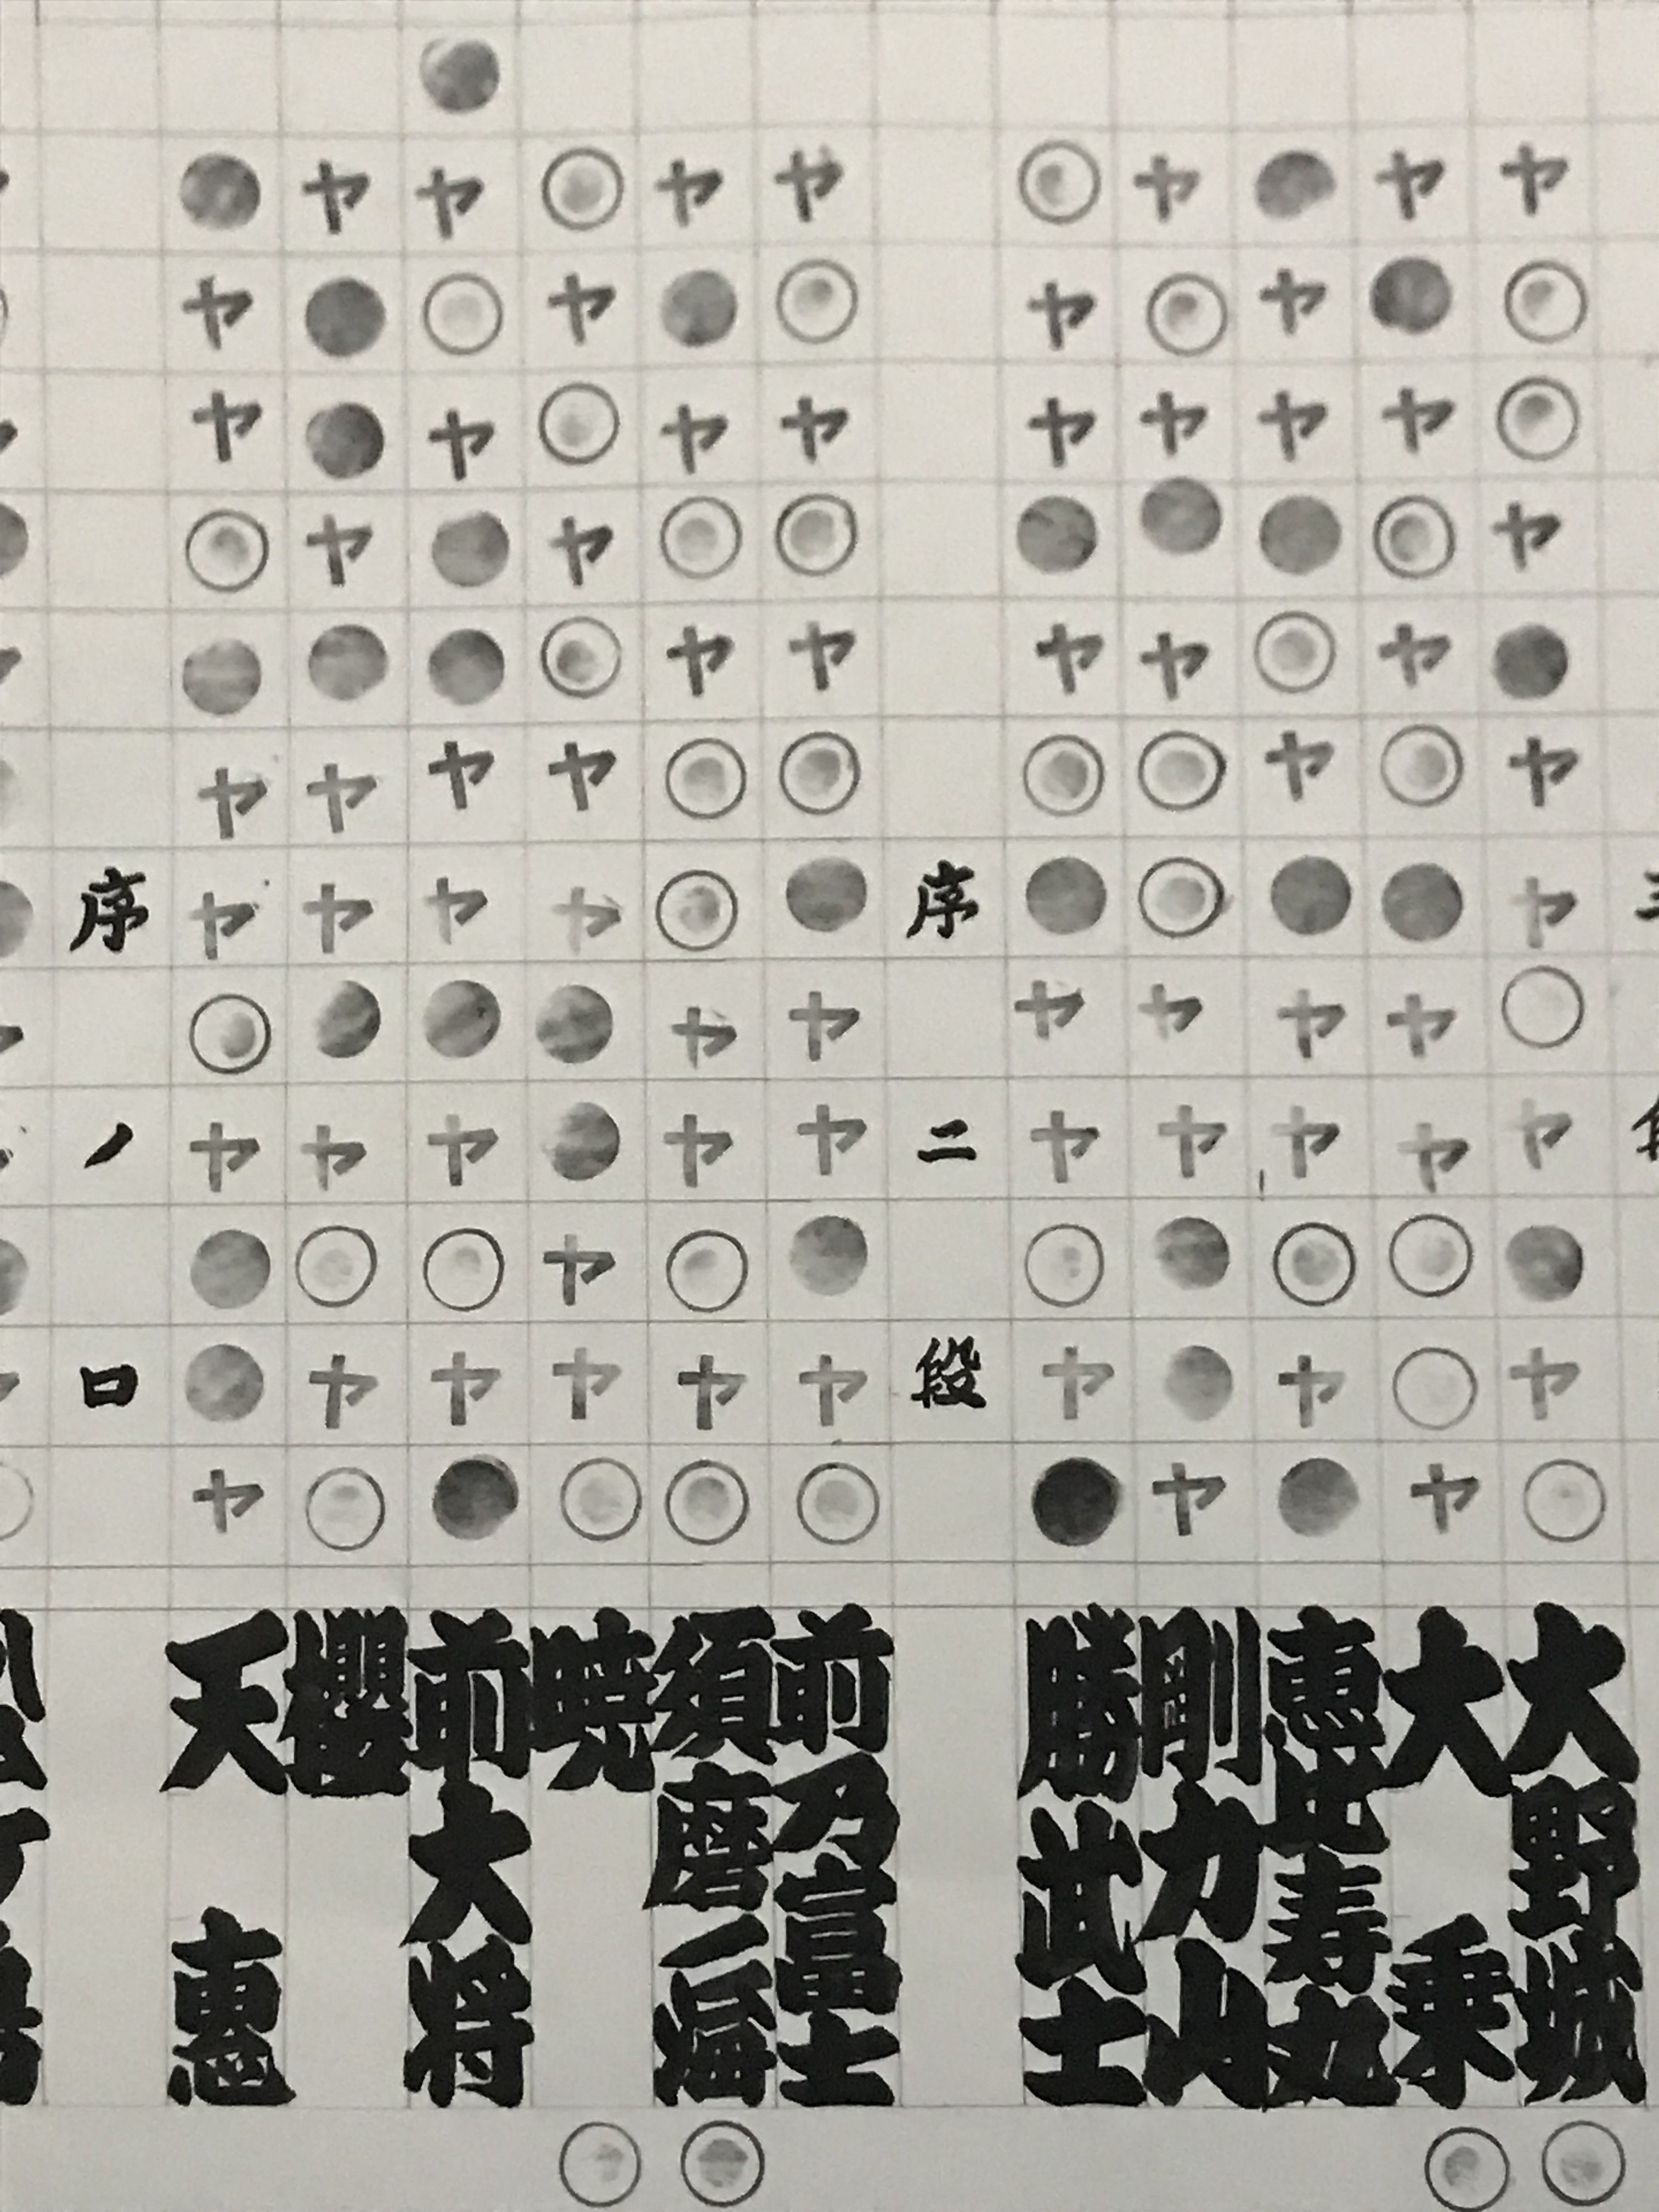 ヤ○○ヤ●ヤヤ○ヤ●ヤ○大野城○
ヤ●ヤ○ヤ○●ヤヤ○○ヤ大乗○
●ヤヤ●○ヤ●ヤヤ○ヤ●惠比寿丸
ヤ○ヤ●ヤ○○ヤヤ●●ヤ剛力山
○ヤヤ●ヤ○●ヤヤ○ヤ●勝武士
序二段
ヤ○ヤ○ヤ○●ヤヤ●ヤ○前乃富士
ヤ●ヤ○ヤ○○ヤヤ○ヤ○須磨ノ海○
○ヤ○ヤ○ヤヤ●●ヤヤ○暁○
●ヤ○ヤ●●ヤヤ●ヤ○ヤ●前大将
ヤ●●ヤ●ヤヤ●ヤ○ヤ○櫻
●ヤヤ○●ヤヤ○ヤ●●ヤ天惠
序ノ口